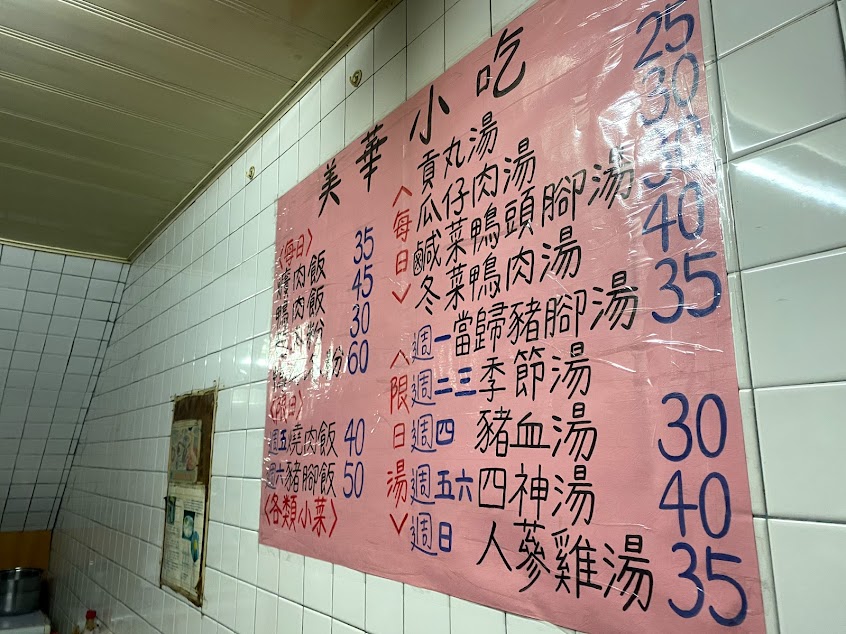 美華小吃
〈每日〉
肉飯 35
鴨肉飯 45
粉 30
粉 60
〈限日〉
週五燒肉飯 40
週六豬腳飯 50
〈各類小菜〉
〈每日〉
貢丸湯 25
瓜仔肉湯 30
鹹菜鴨頭腳湯
冬菜鴨肉湯 40
〈限日湯〉
週一當歸豬腳湯 35
週二三季節湯
週四 豬血湯 30
週五六四神湯 40
週日 人蔘雞湯 35